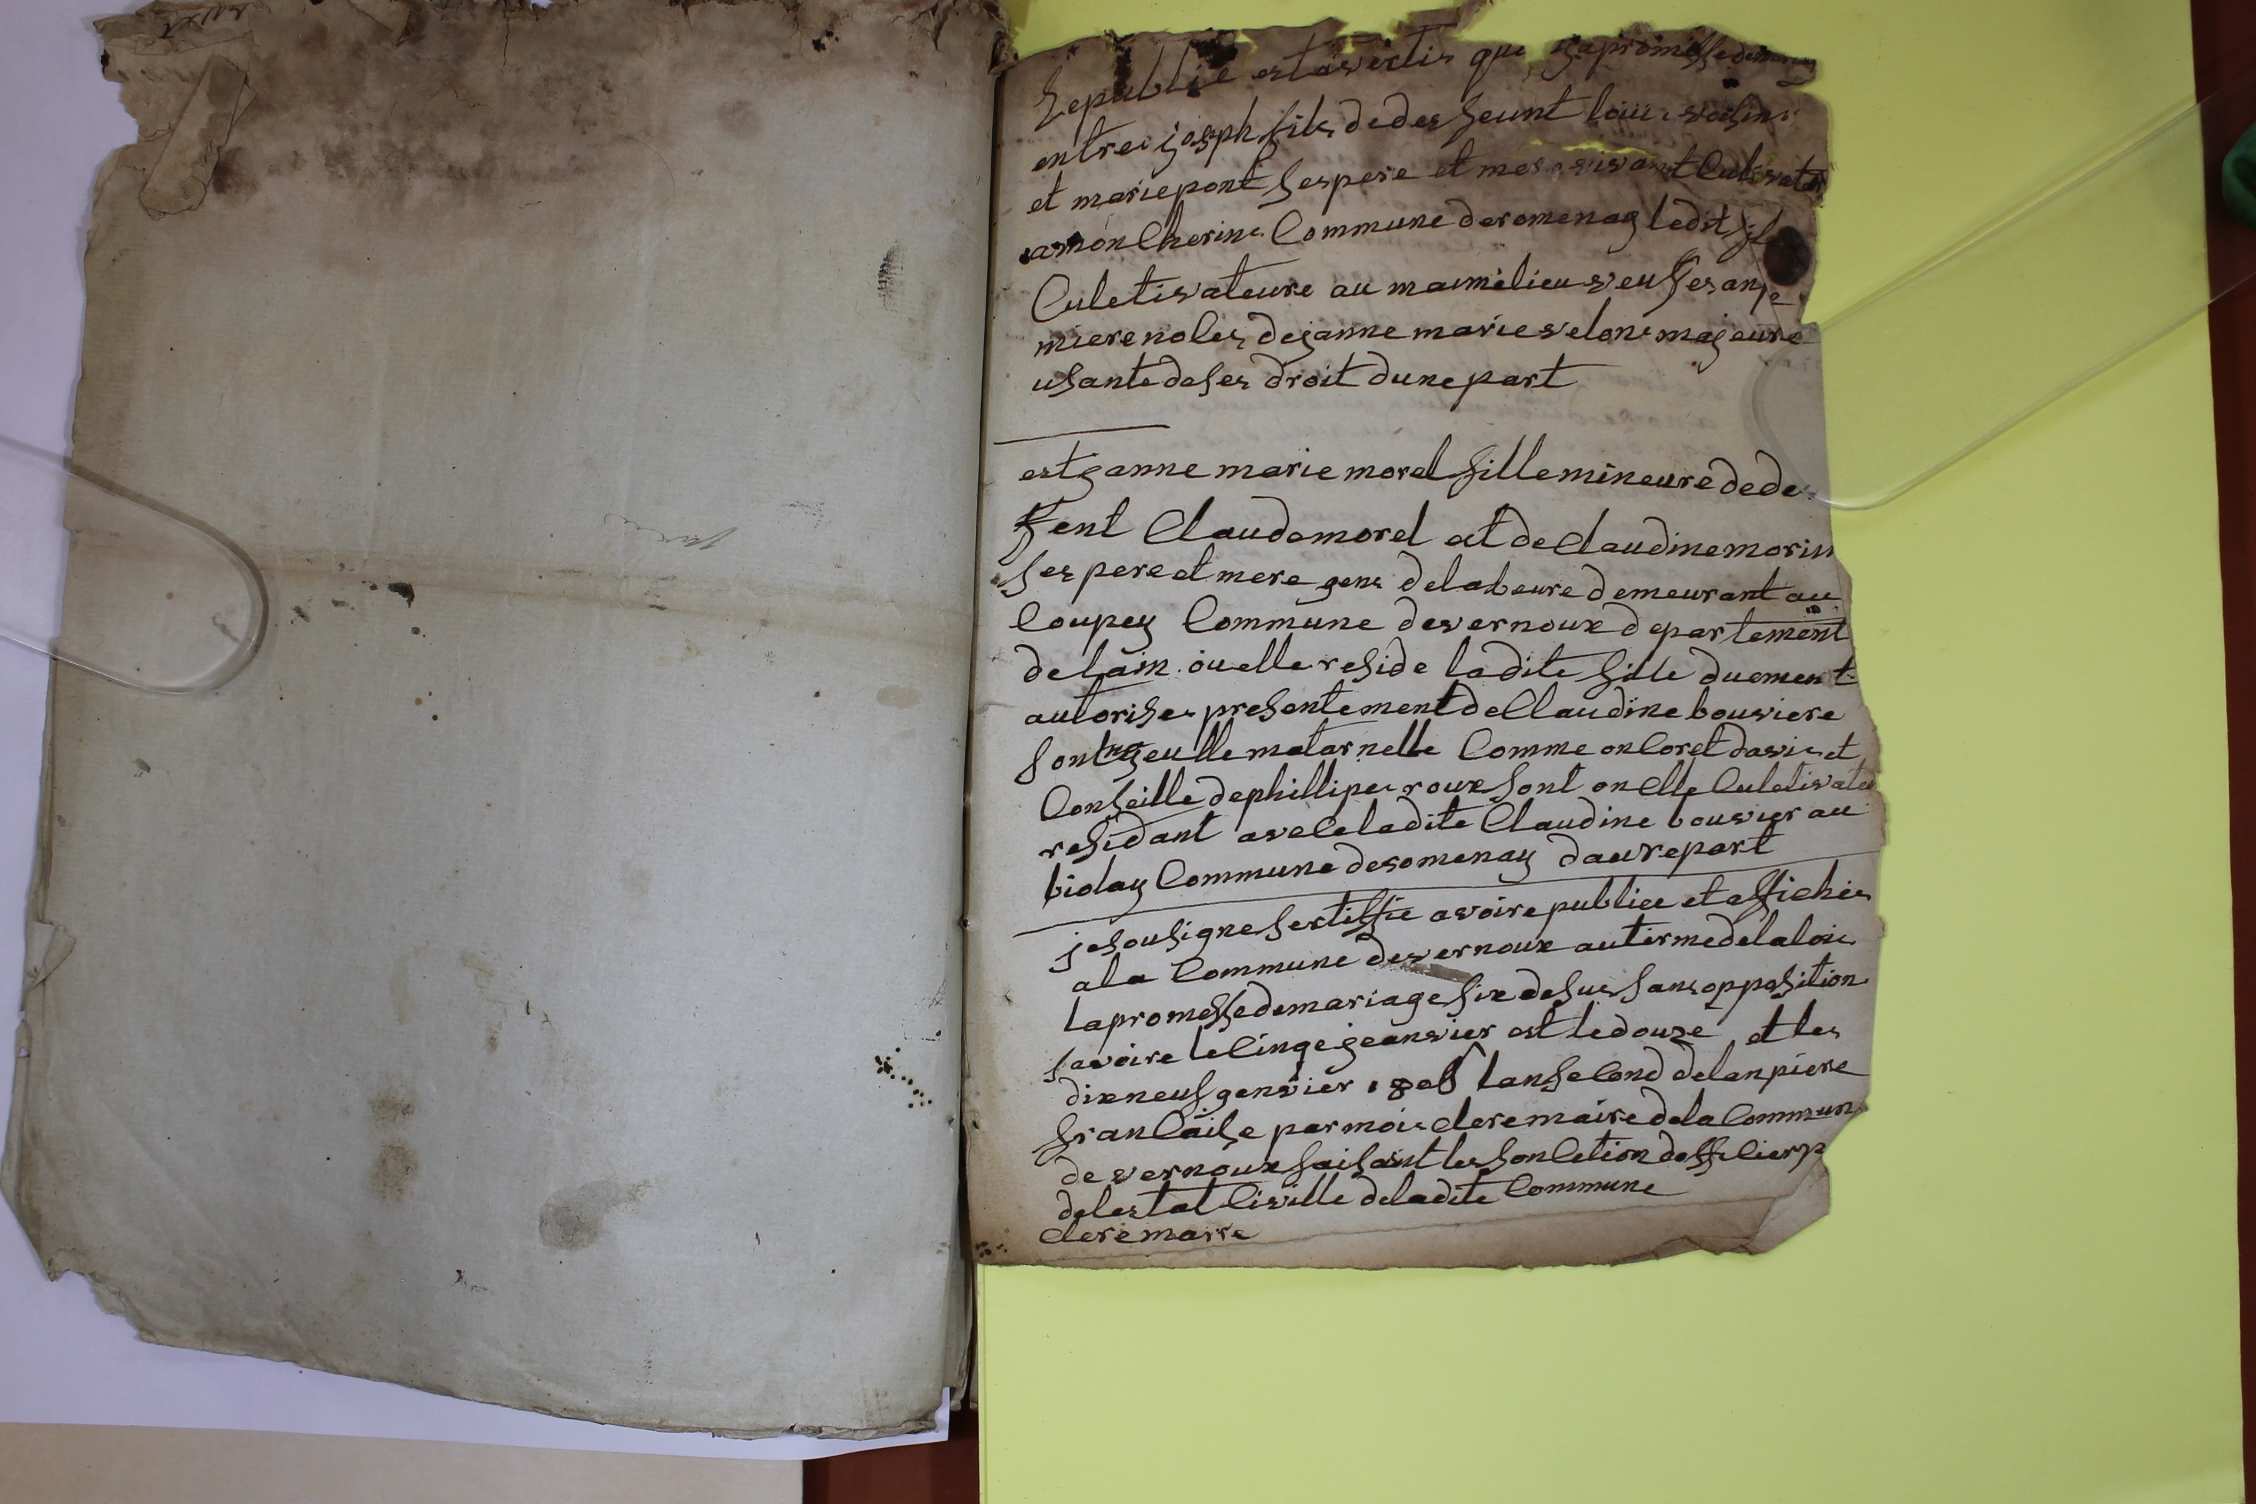 le publie est avertis que ya promesse de
entre joseph fils de des feunt louis voisin
et marie pont ses pere et mere vivant Cultivater
a mon Cherine Commune de romenay ledit fils
Culetivateure au mamelieu veuf es an pr
miere noles de janne marie velon majeure
usante de ses droit dune part
est janne marie morel fille mineure de de
fent Claude morel et de Claudine morin
ses pere et mere gens de labeure demeurant au
Coupey Commune de vernoux departement
de lain ou elle reside ladite fille duement
autorise presentement de Claudine bouviere
sont ayeulle maternelle Comme on Coret davis et
Conseille de phillipe roux sont onClle Culetivateu
residant avele ladite Claudine bouvier au
biolay Commune de romenay dautre part
je sousigne sertiffie avoire publiee et affichee
a la Commune de vernoux au tirme de la loie
la promesse de mariage six desus sans opposition
savoire le Cinqe jeanvier est le douze et les
dixneuf genvier 1806 lan second de lanpiere
franCaise par moi clere maire de la Commune
de vernoux faisant les fonCetion doffiCier p
de lestat Civille de ladite Commune
clere maire